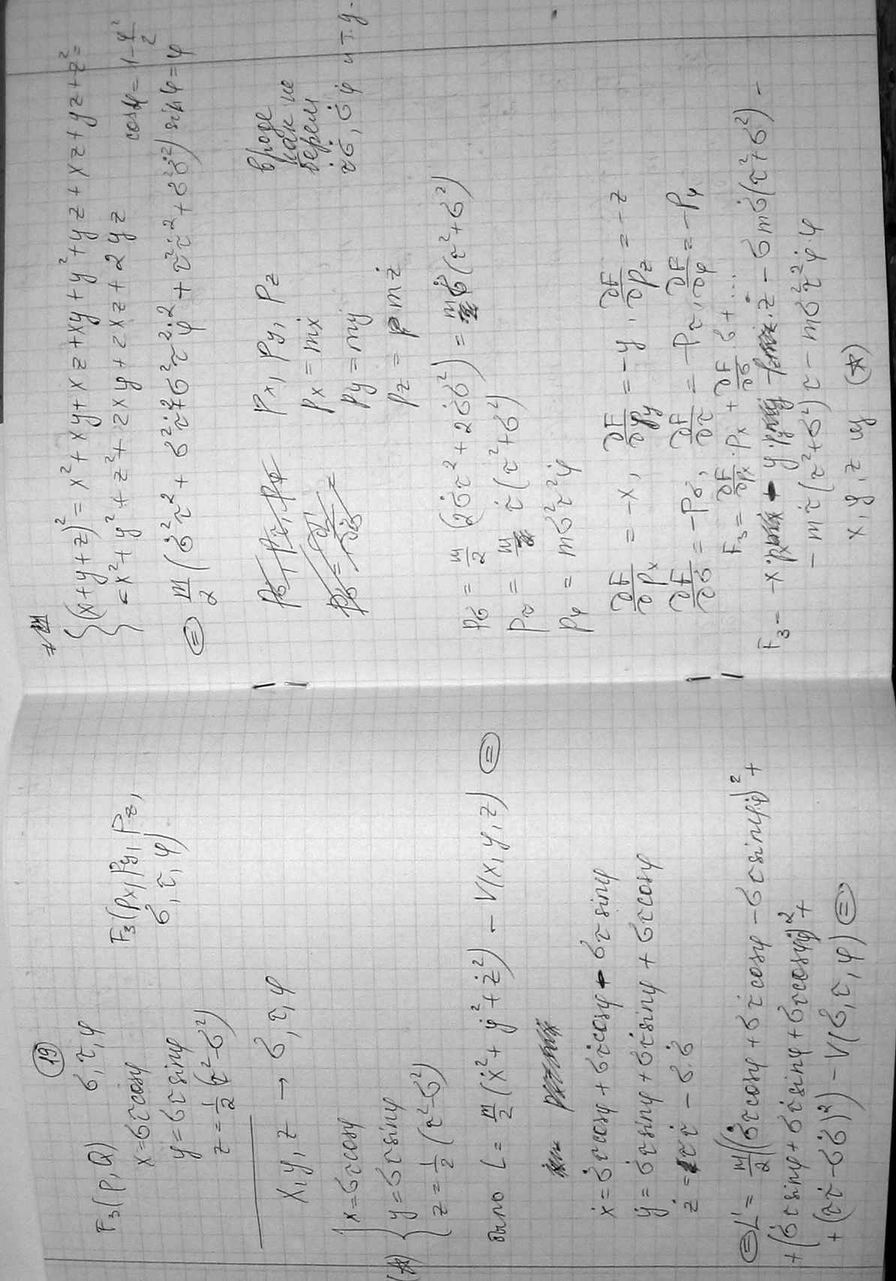 (19)
F₃(P,Q) σ, τ, φ
x = στcosφ F₃(Px, Py, Pz,
y = στsinφ σ, τ, φ)
z = ½(τ²-σ²)
x, y, z → σ, τ, φ
{ x = στcosφ
(*) { y = στsinφ
{ z = ½(τ²-σ²)
было L = m/2 (ẋ² + ẏ² + ż²) - V(x, y, z) (=)
ẋ = σ̇τcosφ + στ̇cosφ - στsinφ
ẏ = σ̇τsinφ + στ̇sinφ + στcosφ
ż = ττ̇ - σ·σ̇
(=) L' = m/2 ((σ̇τcosφ + στ̇cosφ - στsinφφ̇)² +
+ (σ̇τsinφ + στ̇sinφ + στcosφφ̇)² +
+ (ττ̇ - σσ̇)²) - V(σ, τ, φ) (=)
{ (x+y+z)² = x² + xy + xz + xy + y² + yz + xz + yz + z² =
{ = x² + y² + z² + 2xy + 2xz + 2yz
cosφ = 1 - φ²/2
sinφ = φ
(=) m/2 (σ̇²τ² + σ²τ̇² + σ²τ²φ̇² + τ²τ̇² + σ²σ̇²)
Px, Py, Pz
вроде
как не
берем
τσ, σφ и т.д.
Px = mẋ
Py = mẏ
Pz = mż
Pσ = m/2 (2σ̇τ² + 2σ̇σ²) = mσ̇(τ²+σ²)
Pτ = mτ̇(τ²+σ²)
Pφ = mσ²τ²φ̇
∂F/∂Px = -x, ∂F/∂Py = -y, ∂F/∂Pz = -z
∂F/∂σ = -Pσ, ∂F/∂τ = -Pτ, ∂F/∂φ = -Pφ
F₃ = ∂F/∂Px · Px + ∂F/∂σ σ + ...
F₃ = -x·Px - y·Py - Pz·z - σmσ̇(τ²+σ²) -
- mτ̇(τ²+σ²)τ - mσ²τ²φ̇φ
x, y, z из (*)